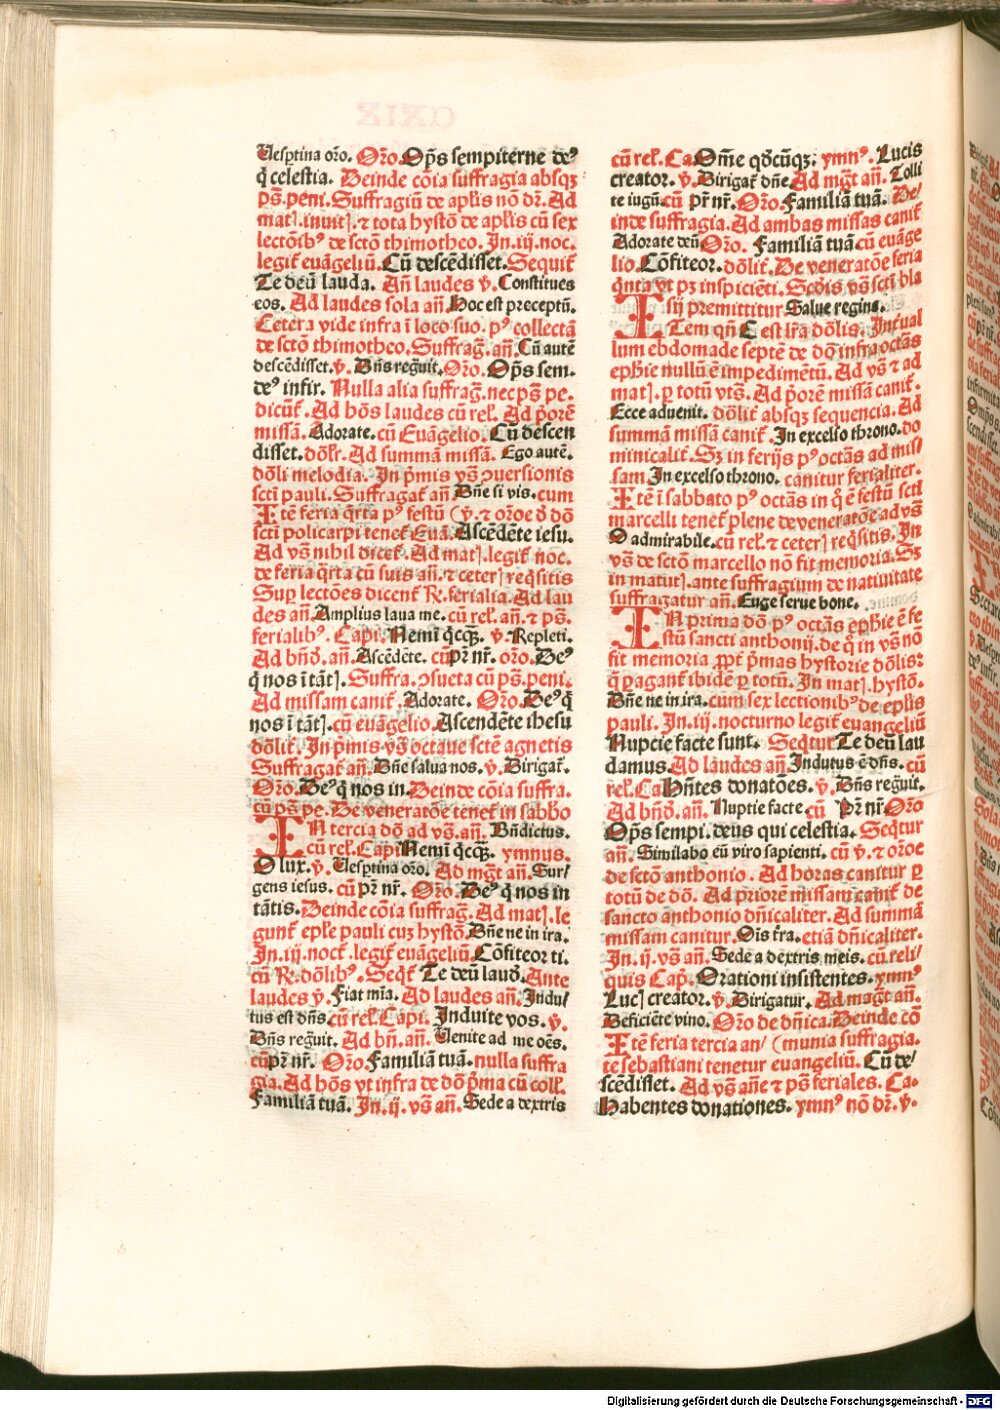 Uesꝑtina or̄o. Or̄o. Op̄s sempiterne de⁹
q̄ celestia. Deinde cōia suffragia absqꝫ
pꝰ. peni. Suffragiū de aplis nō dr̄. Ad
mat]. inuit]. ⁊ tota hystō de aplis cū sex
lectōib⁹ de sctō thimotheo. In .iij. noc.
legit̄ euāgeliū. Cū descēdisset. Sequit̄
Te deū lauda. An̄ laudes v̄. Constitues
eos. Ad laudes sola an̄. Hoc est preceptū.
Cetera vide infra ī loco suo. p⁹ collectā
de sctō thimotheo. Suffraḡ. an̄. Cū autē
descēdisset. v̄. Dn̄s reg̈uit. Or̄o. Op̄s sem.
de⁹ infir. Nulla alia suffraḡ. nec pꝰ pe.
dicūt̄. Ad hōs laudes cū rel̄. Ad p̄orē
missā. Adorate. cū Euāgelio. Cū descen
disset. dōlr̄. Ad summā missā. Ego autē.
dōli melodia. In p̄mis vꝰ ꝯuersionis
scti pauli. Suffragat̄ an̄ Dn̄e si vis. cum
Itē feria q̄rta p⁹ festū (v̄. ⁊ or̄oe d̄ dō
scti policarpi tenet̄ Eua. Ascēdēte iesu.
Ad vꝰ nihil dicet̄. Ad mat]. legit̄ noc.
de feria q̄rta cū suis an̄. ⁊ ceter] req̄sitis
Suꝑ lectōes dicent̄ R̄. ferialia. Ad lau
des an̄. Amplius laua me. cū rel̄. an̄. ⁊ pꝰ.
ferialib⁹. Capi. Nemī q̄cqꝫ. v̄. Repleti.
Ad bn̄d̄. an̄. Ascēdēte. cū pr̄ nr̄. or̄o. De⁹
q̄ nos ī tāt]. Suffra. ꝯsueta cū pꝰ. peni.
Ad missam canit̄. Adorate. Or̄o. De⁹ q̄
nos ī tāt]. cū euāgelio. Ascendēte ihesu
dōlit̄. In p̄mis vꝰ octaue sctē agnetis
Suffragat̄ an̄. Dn̄e salua nos. v̄. Dirigat̄.
Or̄o. De⁹ q̄ nos in. Deinde cōia suffra.
cū pꝰ pe. De veneratōe tenet̄ in sabbo
IN tercia dō ad vꝰ. an̄. Bn̄dictus.
cū rel̄. Capi. Nemī q̄cqꝫ. ymnus.
O lux. v̄. Uesꝑtina or̄o. Ad mḡt an̄. Sur/
gens iesus. cū pr̄ nr̄. Or̄o. De⁹ q̄ nos in
tātis. Deinde cōia suffraḡ. Ad mat]. le
gunt̄ eple pauli cuꝫ hystō. Dn̄e ne in ira.
In .iij. noct̄. legit̄ euāgeliū. Cōfiteor ti.
cū R̄. dōlib⁹. Seq̄t̄ Te deū laud̄. Ante
laudes v̄. Fiat mīa. Ad laudes an̄. Indu/
tus est dn̄s. cū rel̄. Capi. Induite vos. v̄.
Dn̄s reg̈uit. Ad bn̄. an̄. Uenite ad me oēs.
cū pr̄ nr̄. Or̄o. Familiā tuā. nulla suffra
gia. Ad hōs vt infra de dō p̄ma cū coll̄.
Familiā tuā. In .ij. vꝰ an̄. Sede a dextris
cū rel̄. Ca. Om̄e qd̄cūqꝫ. ymn⁹. Lucis
creator. v̄. Dirigat̄ dn̄e. Ad mḡt an̄. Tolli
te iugū. cū pr̄ nr̄. Or̄o. Familiā tuā. De/
inde suffragia. Ad ambas missas canit̄
Adorate deū Or̄o. Familiā tuā. cū euāge
lio. Cōfiteor. dōlit̄. De veneratōe feria
q̄nta vt pꝫ inspiciēti. Scd̄is vꝰ scti bla
sij premittitur Salue regina.
ITem qn̄ C est lr̄a dōlis. Int̄ual
lum ebdomade septē de dō infra octās
ephie nullū ē impedimētū. Ad vꝰ ⁊ ad
mat]. ꝑ totū vts̄. Ad p̄orē missā canit̄.
Ecce aduenit. dōlit̄ absqꝫ sequencia. Ad
summā missā canit̄. In excelso throno. do
minicalit̄. Sꝫ in ferijs p⁹ octās ad mis/
sam In excelso throno. canitur ferialiter.
Itē ī sabbato p⁹ octās in q̄ ē festū scti
marcelli tenet̄ plene de veneratōe ad vꝰ
O admirabile. cū rel̄. ⁊ ceter] req̄sitis. In
vꝰ de sctō marcello nō fit memoria. Sꝫ
in matut]. ante suffragium de natiuitate
suffragatur an̄. Euge serue bone.
IN prima dō p⁹ octās ephie ē fe
stū sancti anthonij. de q̄ in vꝰ nō
fit memoria ꝓpt̄ p̄mas hystorie dōlis:
q̄ ꝑagant̄ ibidē ꝑ totū. In mat]. hystō.
Dn̄e ne in ira. cum sex lectionib⁹ de eplis
pauli. In .iij. nocturno legit̄ euangeliū
Nupcie facte sunt. Seqtur̄ Te deū lau
damus. Ad laudes an̄ Indutus ē dn̄s. cū
rel̄. Ca Hn̄tes donatōes. v̄. Dn̄s reg̈uit.
Ad bn̄d̄. an̄. Nuptie facte cū pr̄ nr̄. Or̄o
Op̄s sempi. deus qui celestia. Seqtur̄
an̄. Similabo eū viro sapienti. cū v̄. ⁊ or̄oe
de sctō anthonio. Ad horas canitur ꝑ
totū de dō. Ad priorē missam canit̄ de
sancto anthonio dn̄icaliter. Ad summā
missam canitur. Ois tr̄a. etiā dn̄icaliter.
In .ij. vꝰ an̄. Sede a dextris meis. cū reli/
quis Cap̄. Orationi insistentes. ymn⁹
Luc] creator. v̄. Dirigatur. Ad maḡt an̄.
Deficiēte vino. Or̄o de dn̄ica. Deinde cō
Itē feria tercia an/ (munia suffragia.
te sebastiani tenetur euangeliū. Cū de/
scēdisset. Ad vꝰ an̄e ⁊ pꝰ feriales. Ca.
Habentes donationes. ymn⁹ nō dr̄. v̄.
Digitalisierung gefördert durch die Deutsche Forschungsgemeinschaft - DFG